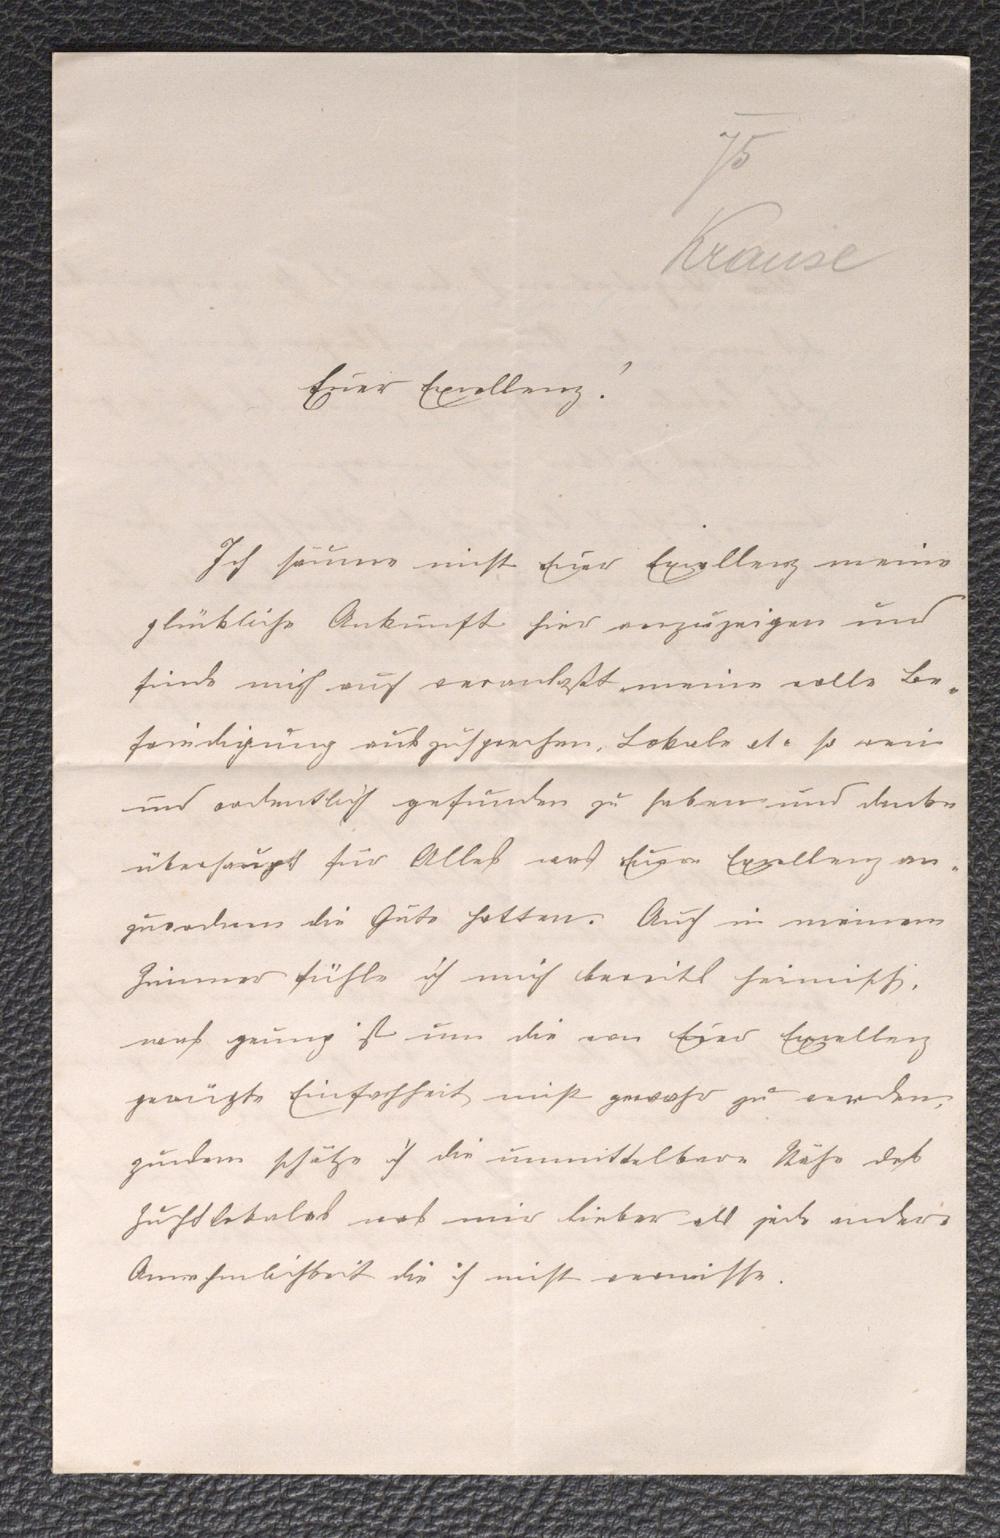 75
Krause
Euer Excellenz!
Ich säume nicht Euer Excellenz meine
glückliche Ankunft hier anzuzeigen und
finde mich auch veranlaßt meine volle Be-
friedigung auszusprechen, Lokale etc so rein
und ordentlich gefunden zu haben und danke
überhaupt für Alles was Euere Excellenz an-
zuordnen die Güte hatten. Auch in meinem
Zimmer fühle ich mich bereits heimisch,
was genug ist um die von Euer Excellenz
gerügte Einfachheit nicht gewahr zu werden,
zudem schätze ich die unmittelbare Nähe des
Zuchtlokales was mir lieber als jede andere
Annehmlichkeit die ich nicht vermisse.